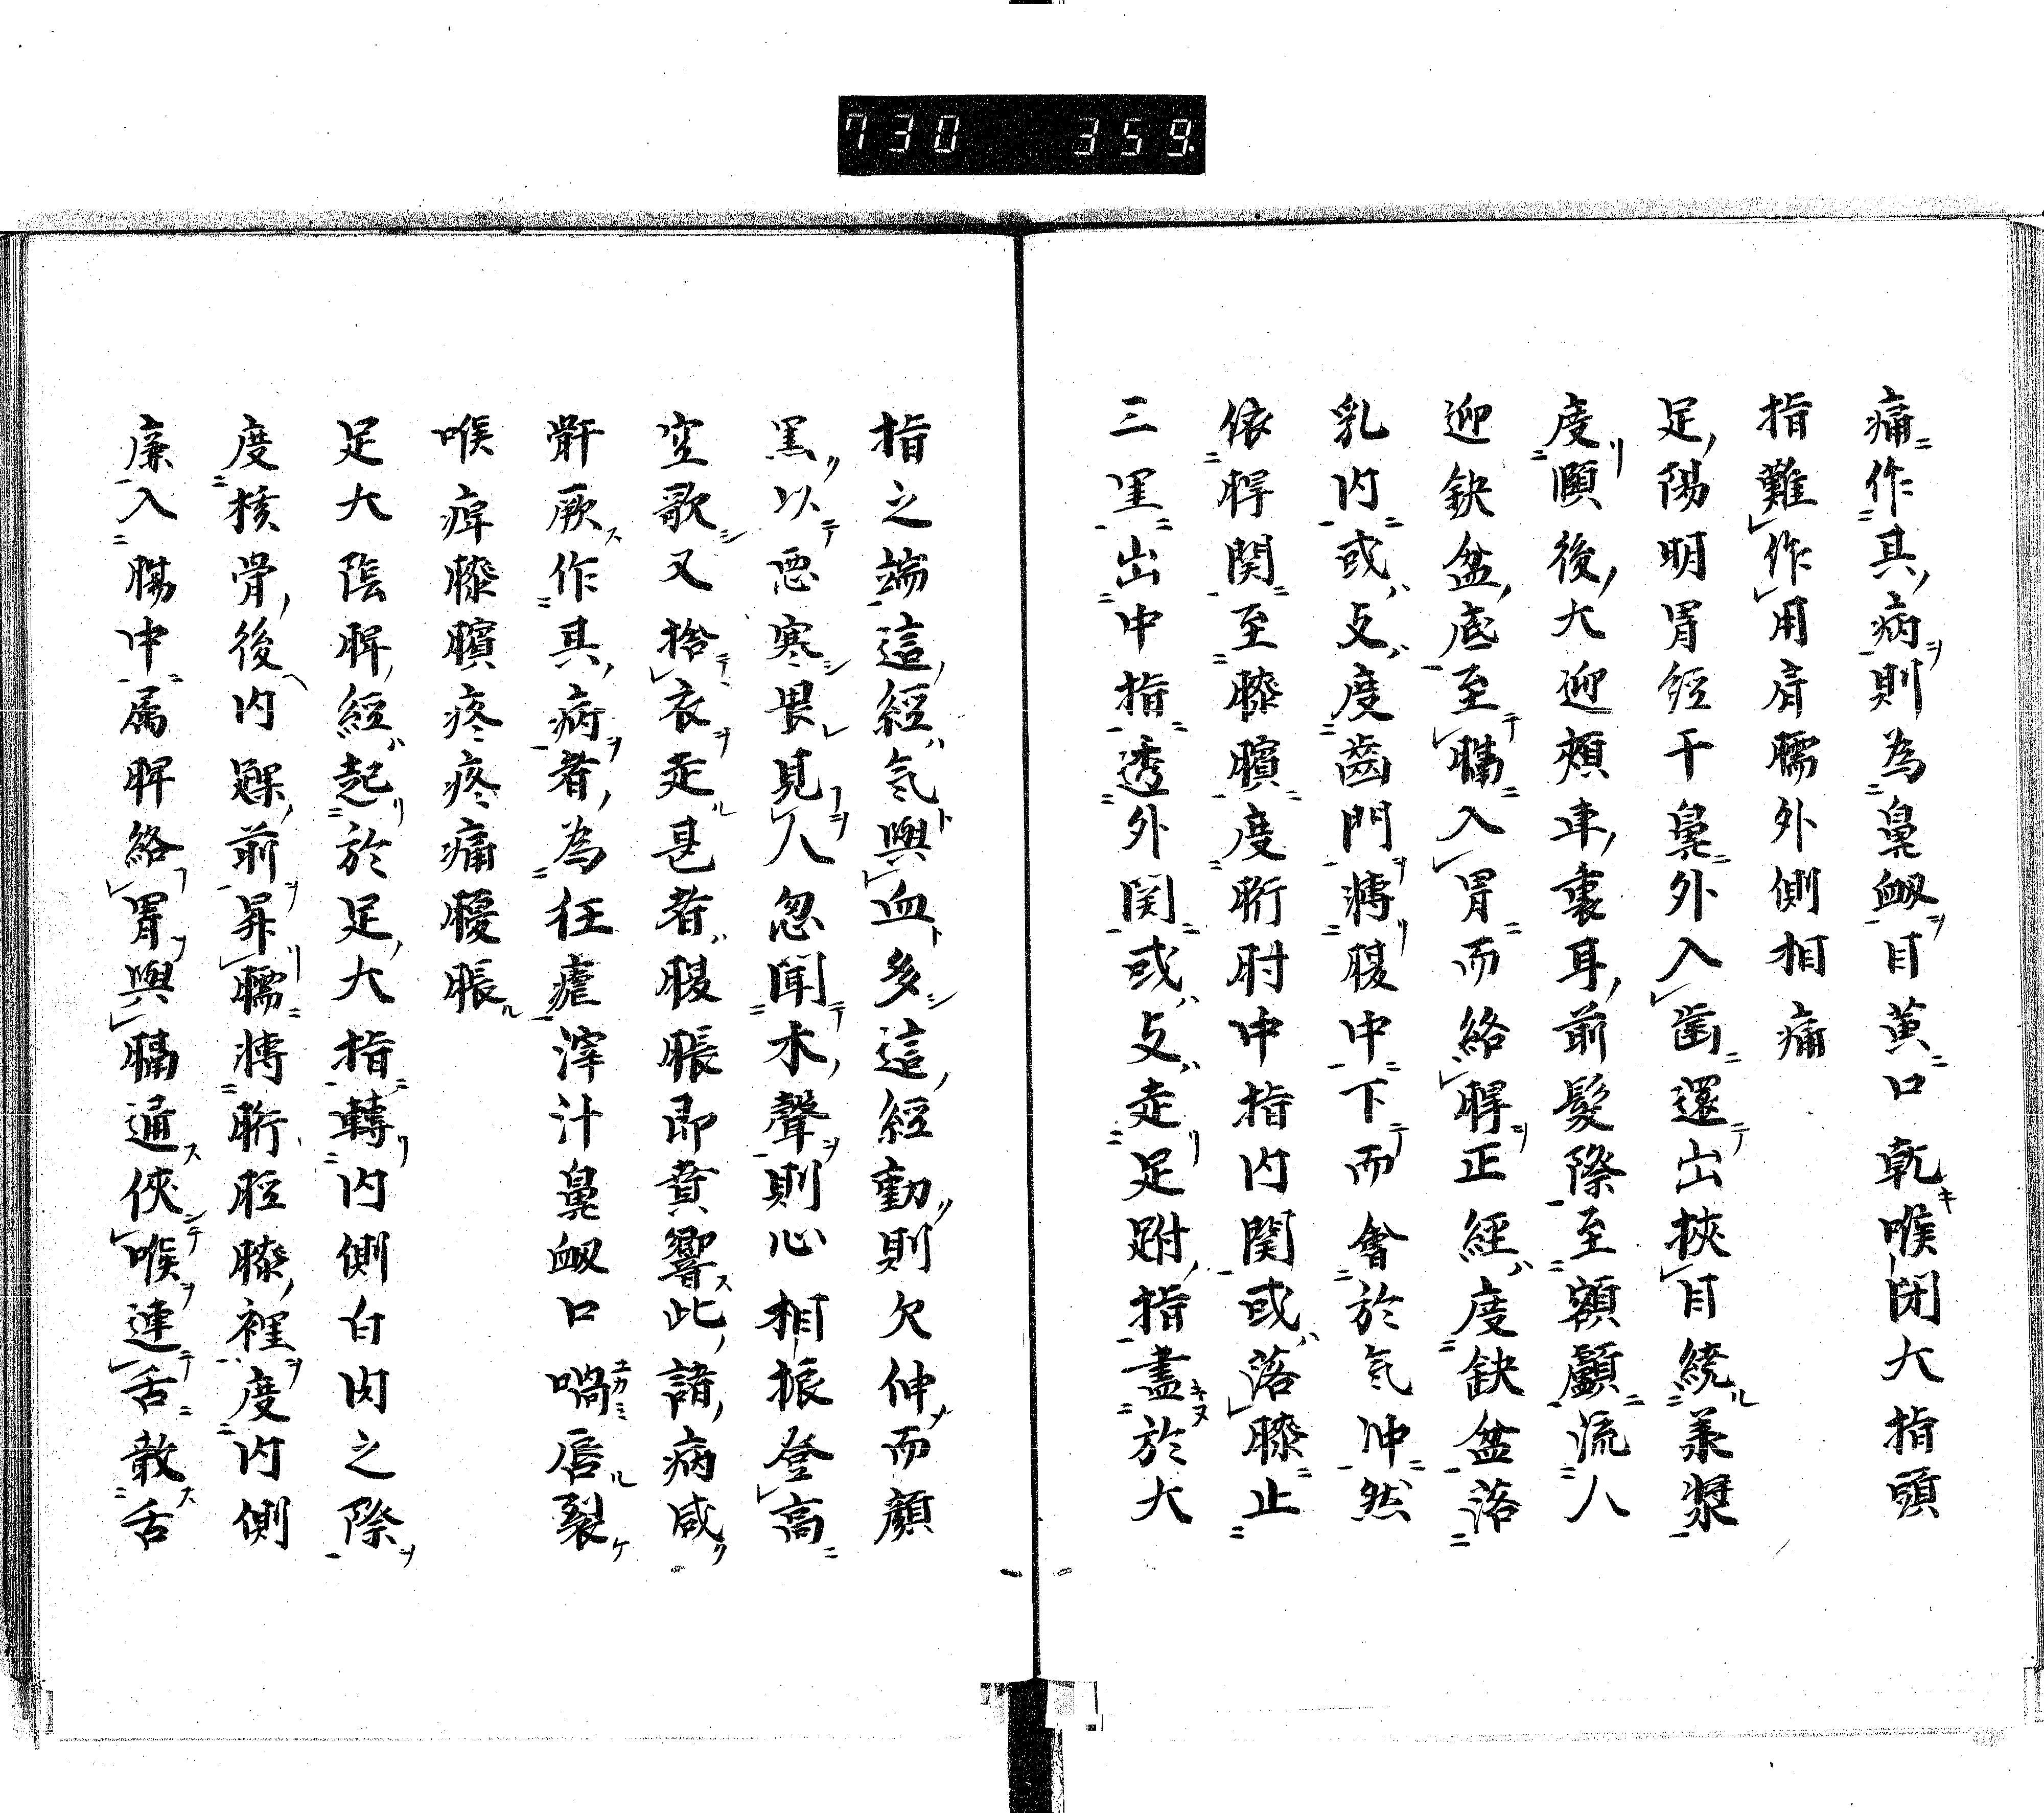 730 359.
痛作其病則為鼻衄目黄口乾喉閉大指頭
指難作用肩臑外側相痛
足陽明胃経干鼻外入歯還出挟目繞承漿
度頤後大迎頬車裏耳前髪際至額顱流人
迎鈌盆底至膈入胃而絡脾正經度鈌盆落
乳内或攴度齒門搏腹中下而會於気冲然
依髀関至膝臏度䯒肘中指内関或落膝止
三里出中指透外関或攴走足跗指盡於大
指之端這經気與血多這經動則欠伸而顔
黒以悪寒畏見人忽聞木聲則心相振登高
空歌又捨衣走甚者腹脹即賁響此諸病咸
骭厥作其病者為狂瘧滓汁鼻衄口喎唇裂
喉痺膝臏疼疼痛腹脹
足大陰脾經起於足大指轉内側白肉之際
度核骨後内踝前昇臑搏䯒脛膝裡度内側
廉入腸中属脾絡胃與膈通俠喉連舌散舌